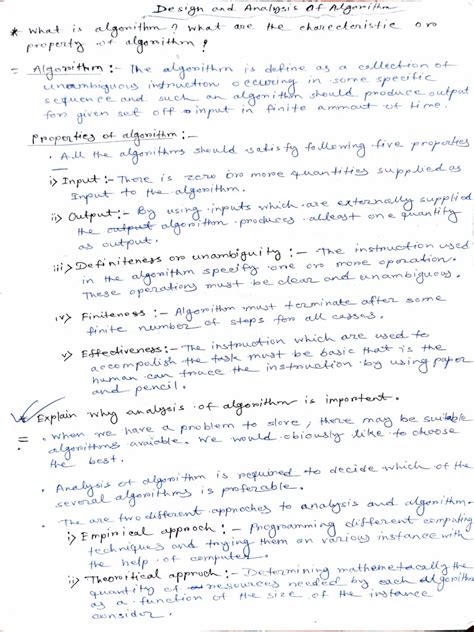 Design and Analysis Of Algorithm
* What is algorithm? What are the charecteristic or
property of algorithm?
= Algorithm :- The algorithm is define as a collection of
unambiguous instruction occuring in some specific
sequence and such an algorithm should produce output
for given set off input in finite ammout of time.
Properties of algorithm :-
• All the algorithms should satisfy following five properties
i) Input :- There is zero or more quantities supplied as
Input to the algorithm.
ii) Output :- By using inputs which are externally supplied
the algorithm produces atleast one quantity
as output.
iii) Definiteness or unambiguity :- The instruction used
in the algorithm specify one or more oporation.
These operations must be clear and unambiguous.
iv) Finiteness :- Algorithm must terminate after some
finite number of steps for all casses.
v) Effectiveness :- The instruction which are used to
accompolish the task must be basic that is the
human can trace the instruction by using paper
and pencil.
* Explain why analysis of algorithm is important.
= • When we have a problem to slove, there may be suitable
algorithms avaiable. We would obiously like to choose
the best.
• Analysis of algorithm is required to decide which of the
several algorithms is preferable.
• The are two different approches to analysis and algorithm.
i) Empirical approch :- Programming different computing
techniques and trying them on various instance with
the help of computer.
ii) Theoritical approch :- Determining mathematically the
quantity of resources needed by each algorithm
as a function of the size of the instance
consider.